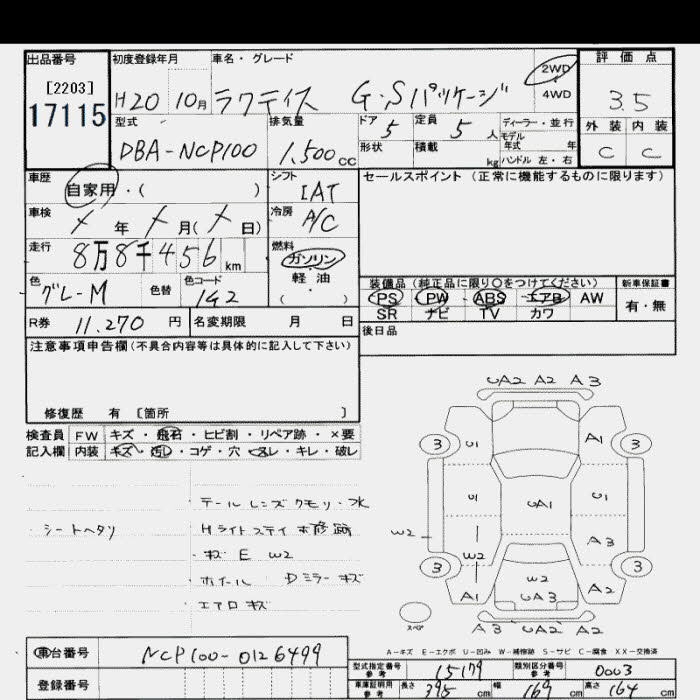 出品番号 初度登録年月 車名・グレード 2WD 評価点
[2203] H20 10月 ラクティス G・Sパッケージ 4WD 3.5
17115 型式 排気量 ドア 定員 ディーラー・並行 外装 内装
DBA-NCP100 1,500cc 5 5人 モデル年式 年 C C
形状 積載 kg ハンドル 左・右
車歴 シフト セールスポイント(正常に機能するものに限ります)
自家用・( ) IAT
車検 冷房
メ年 メ月(メ日) A/C
走行 燃料
8万8千456km ガソリン
色 色替 色コード 軽・油
グレーM 1G2 ( )
装備品(純正品に限り○をつけてください) 新車保証書
PS PW ABS エアB AW 有・無
SR ナビ TV カワ
R券 11,270円 名変期限 月 日 後日品
注意事項申告欄(不具合内容等は具体的に記入して下さい)
修復歴 有 [箇所 ]
検査員 FW キズ・飛石・ヒビ割・リペア跡・×要
記入欄 内装 キズ・汚レ・コゲ・穴・スレ・キレ・破レ
テールレンズクモリ・水
シートヘタリ Hライトステイ 補修跡
・キズ E W2
ホイール Dミラーキズ
エアロキズ
UA2 A2 A3
3 U1 A1 3
U1 UA1 U1
W2 W2 A3
3 A1 W2 UA3 A2 3
スペア A3 UA2 A2
A-キズ E-エクボ U-凹み W-補修跡 S-サビ C-腐食 XX-交換済
車台番号 NCP100-0126499
登録番号
型式指定番号 参考 15179 類別区分番号 参考 0003
車庫証明用 参考 長さ 395cm 幅 169cm 高さ 164cm